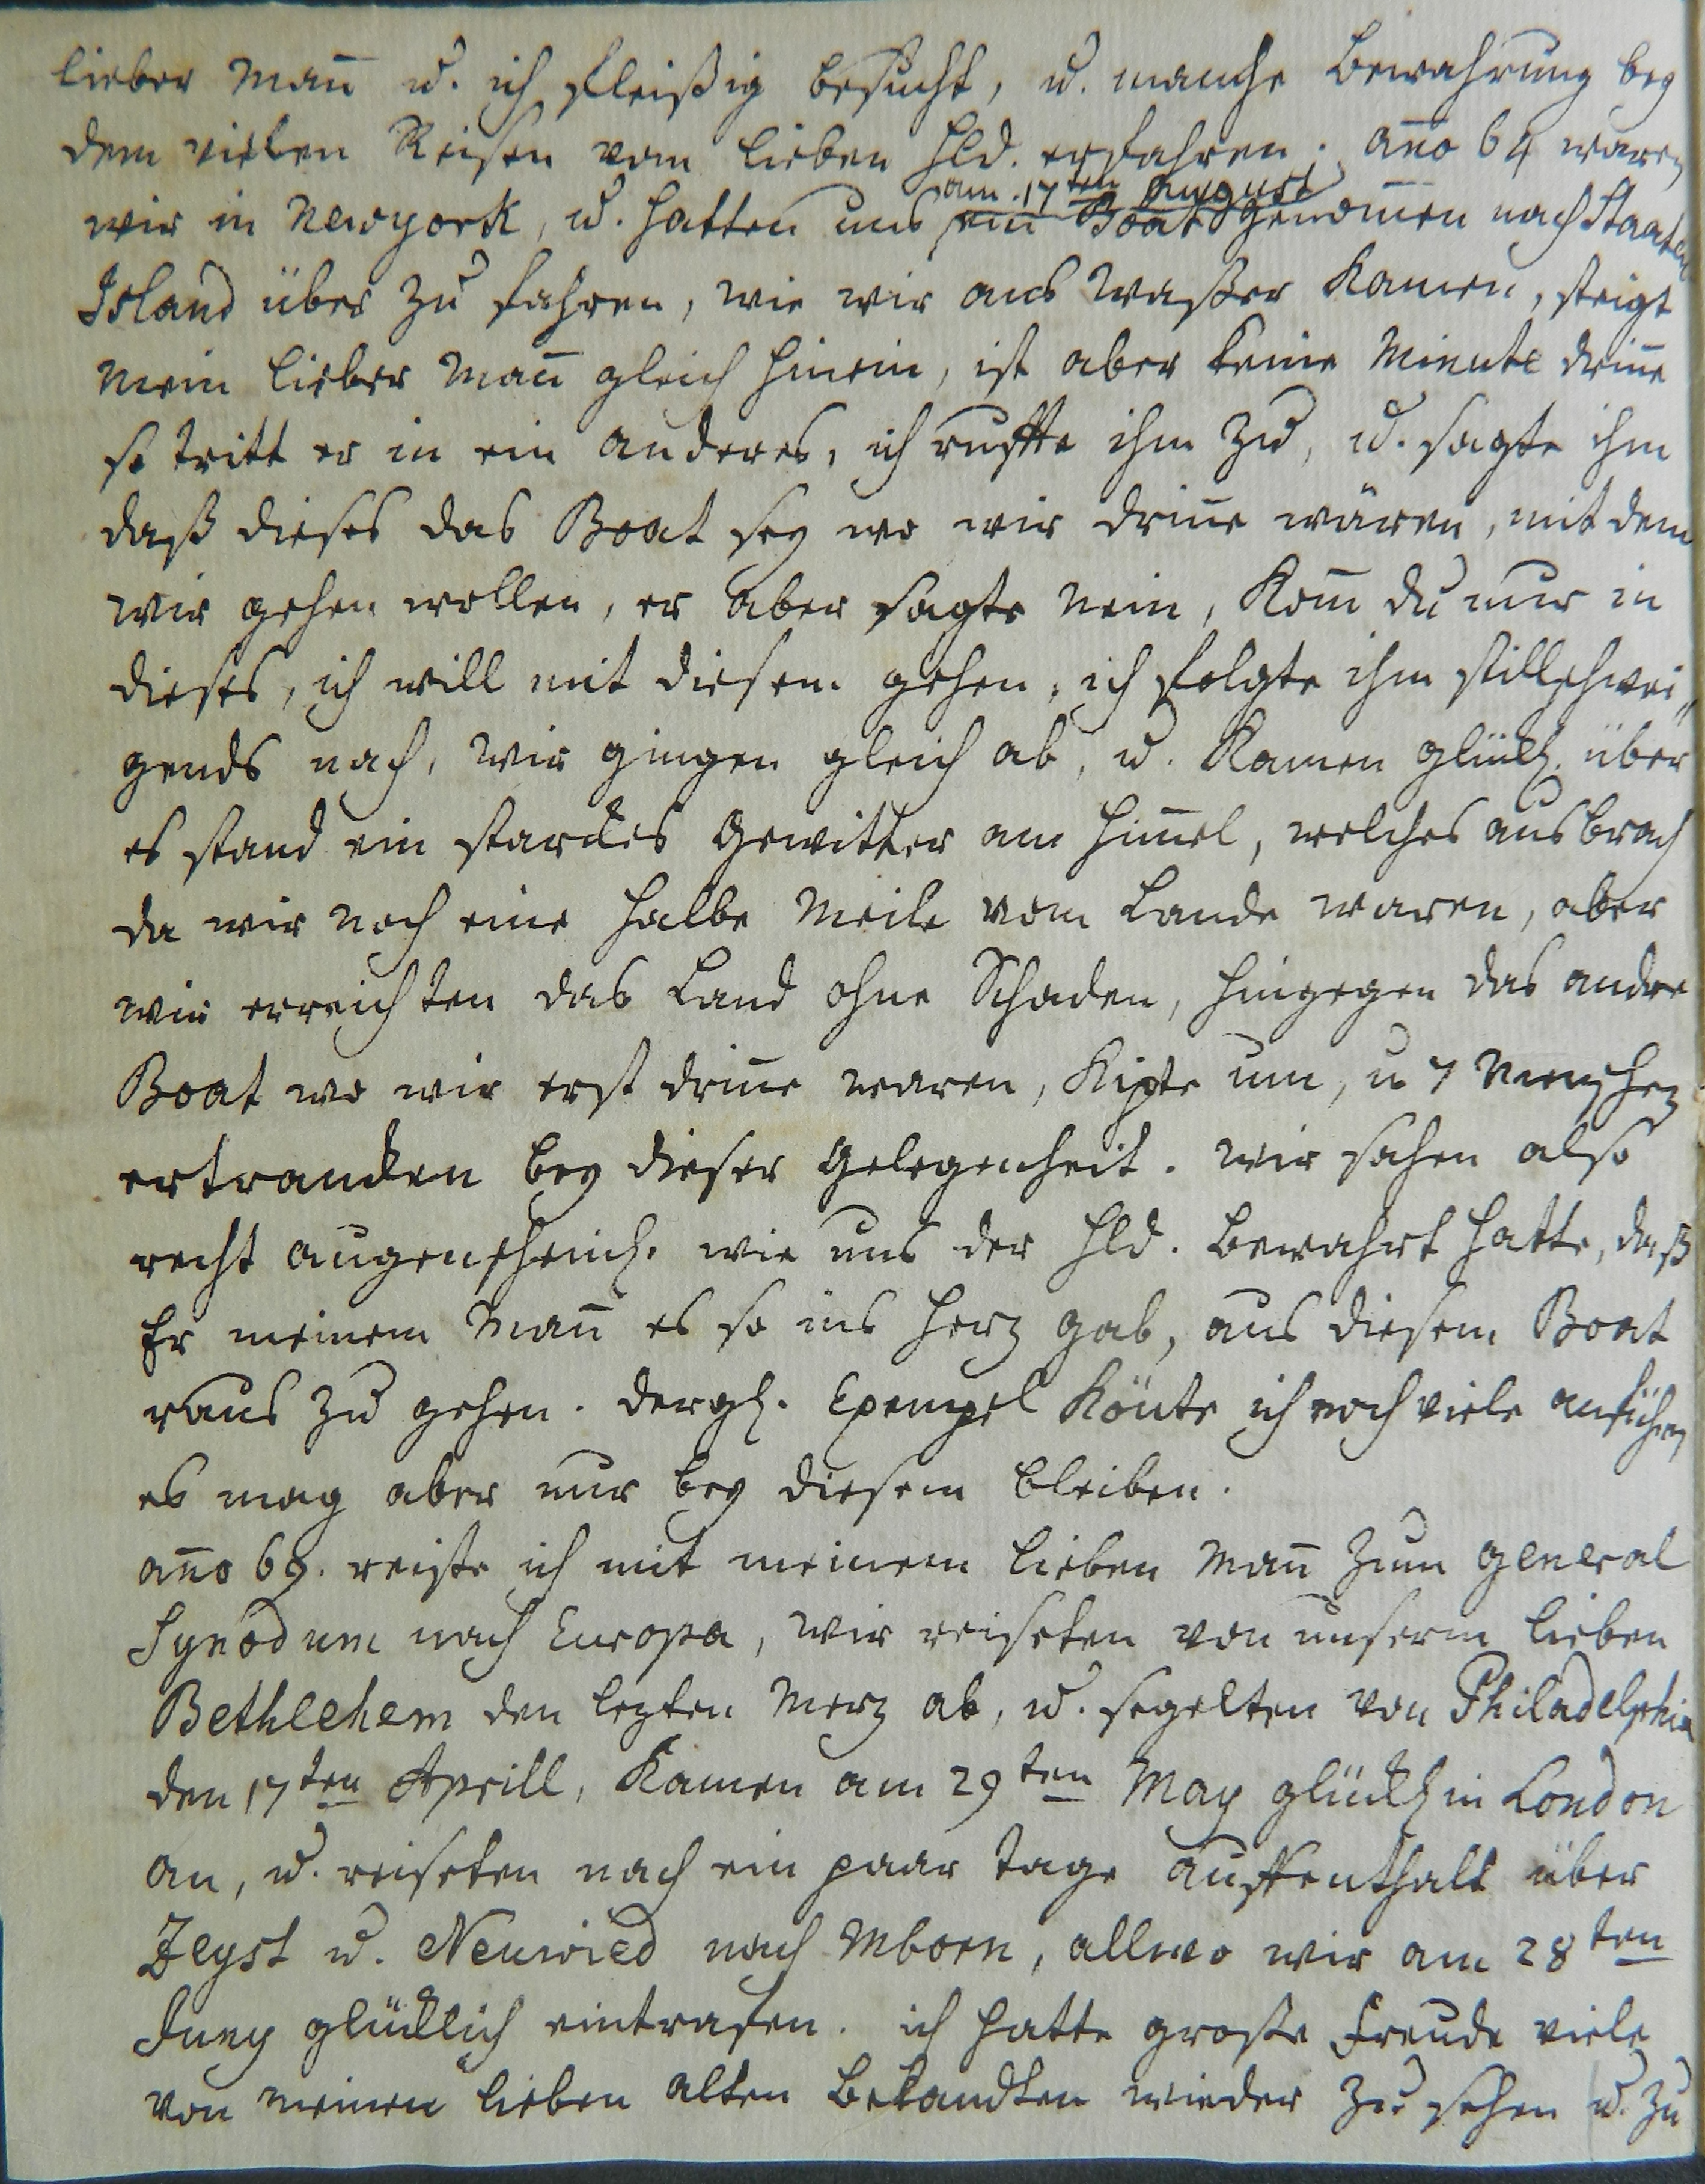 lieber Mañ u. ich fleißig besucht, u. manche Bewahrung bey
dem vielen Reisen vom lieben Hld. erfahren. añо 64 waren
am 17ten August
wir in Newyork, u. hatten uns ein Boat genom̃en nach Staaten
Island über zu fahren, wie wir ans Waßer kamen, steigt
mein lieber Mañ gleich hinein, ist aber keine Minute driñe
so tritt er in ein anderes, ich ruffte ihm zu, u. sagte ihm
daß dieses das Boat sey wo wir driñe wären, mit dem
wir gehen wollen, er aber sagte Nein, kom̃ du nur in
dieses, ich will mit diesem gehen, ich folgte ihm stillschwei„
gends nach, wir gingen gleich ab, u. kamen glückl. über
es stand ein starckes Gewitter am Him̃el, welches ausbrach
da wir noch eine halbe Meile vom Lande waren, aber
wir erreichten das Land ohne Schaden, hingegen das andre
Boat wo wir erst driñe waren, kipte um, u 7 Menschen
ertrancken bey dieser Gelegenheit. wir sahen also
recht augenscheinl. wie uns der Hld. bewahrt hatte, daß
Er meinem Mañ es so ins Herz gab, aus diesem Boat
raus zu gehen. dergl. Exempel köñte ich noch viele anführen
es mag aber nur bey diesem bleiben.
añо 69. reiste ich mit meinem lieben Mañ zum General
Synodum nach Europa, wir reiseten von unserm lieben
Bethlehem den lezten Merz ab, u. segelten von Philadelphia
den 17ten Aprill, kamen am 29ten May glückl in London
an, u. reiseten nach ein paar Tage Auffenthalt über
Zeyst u. Neuwied nach Mborn, allwo wir am 28ten
Juny glücklich eintrafen. ich hatte große Freude viele
von meinen lieben alten Bekandten wieder zu sehen u. zu